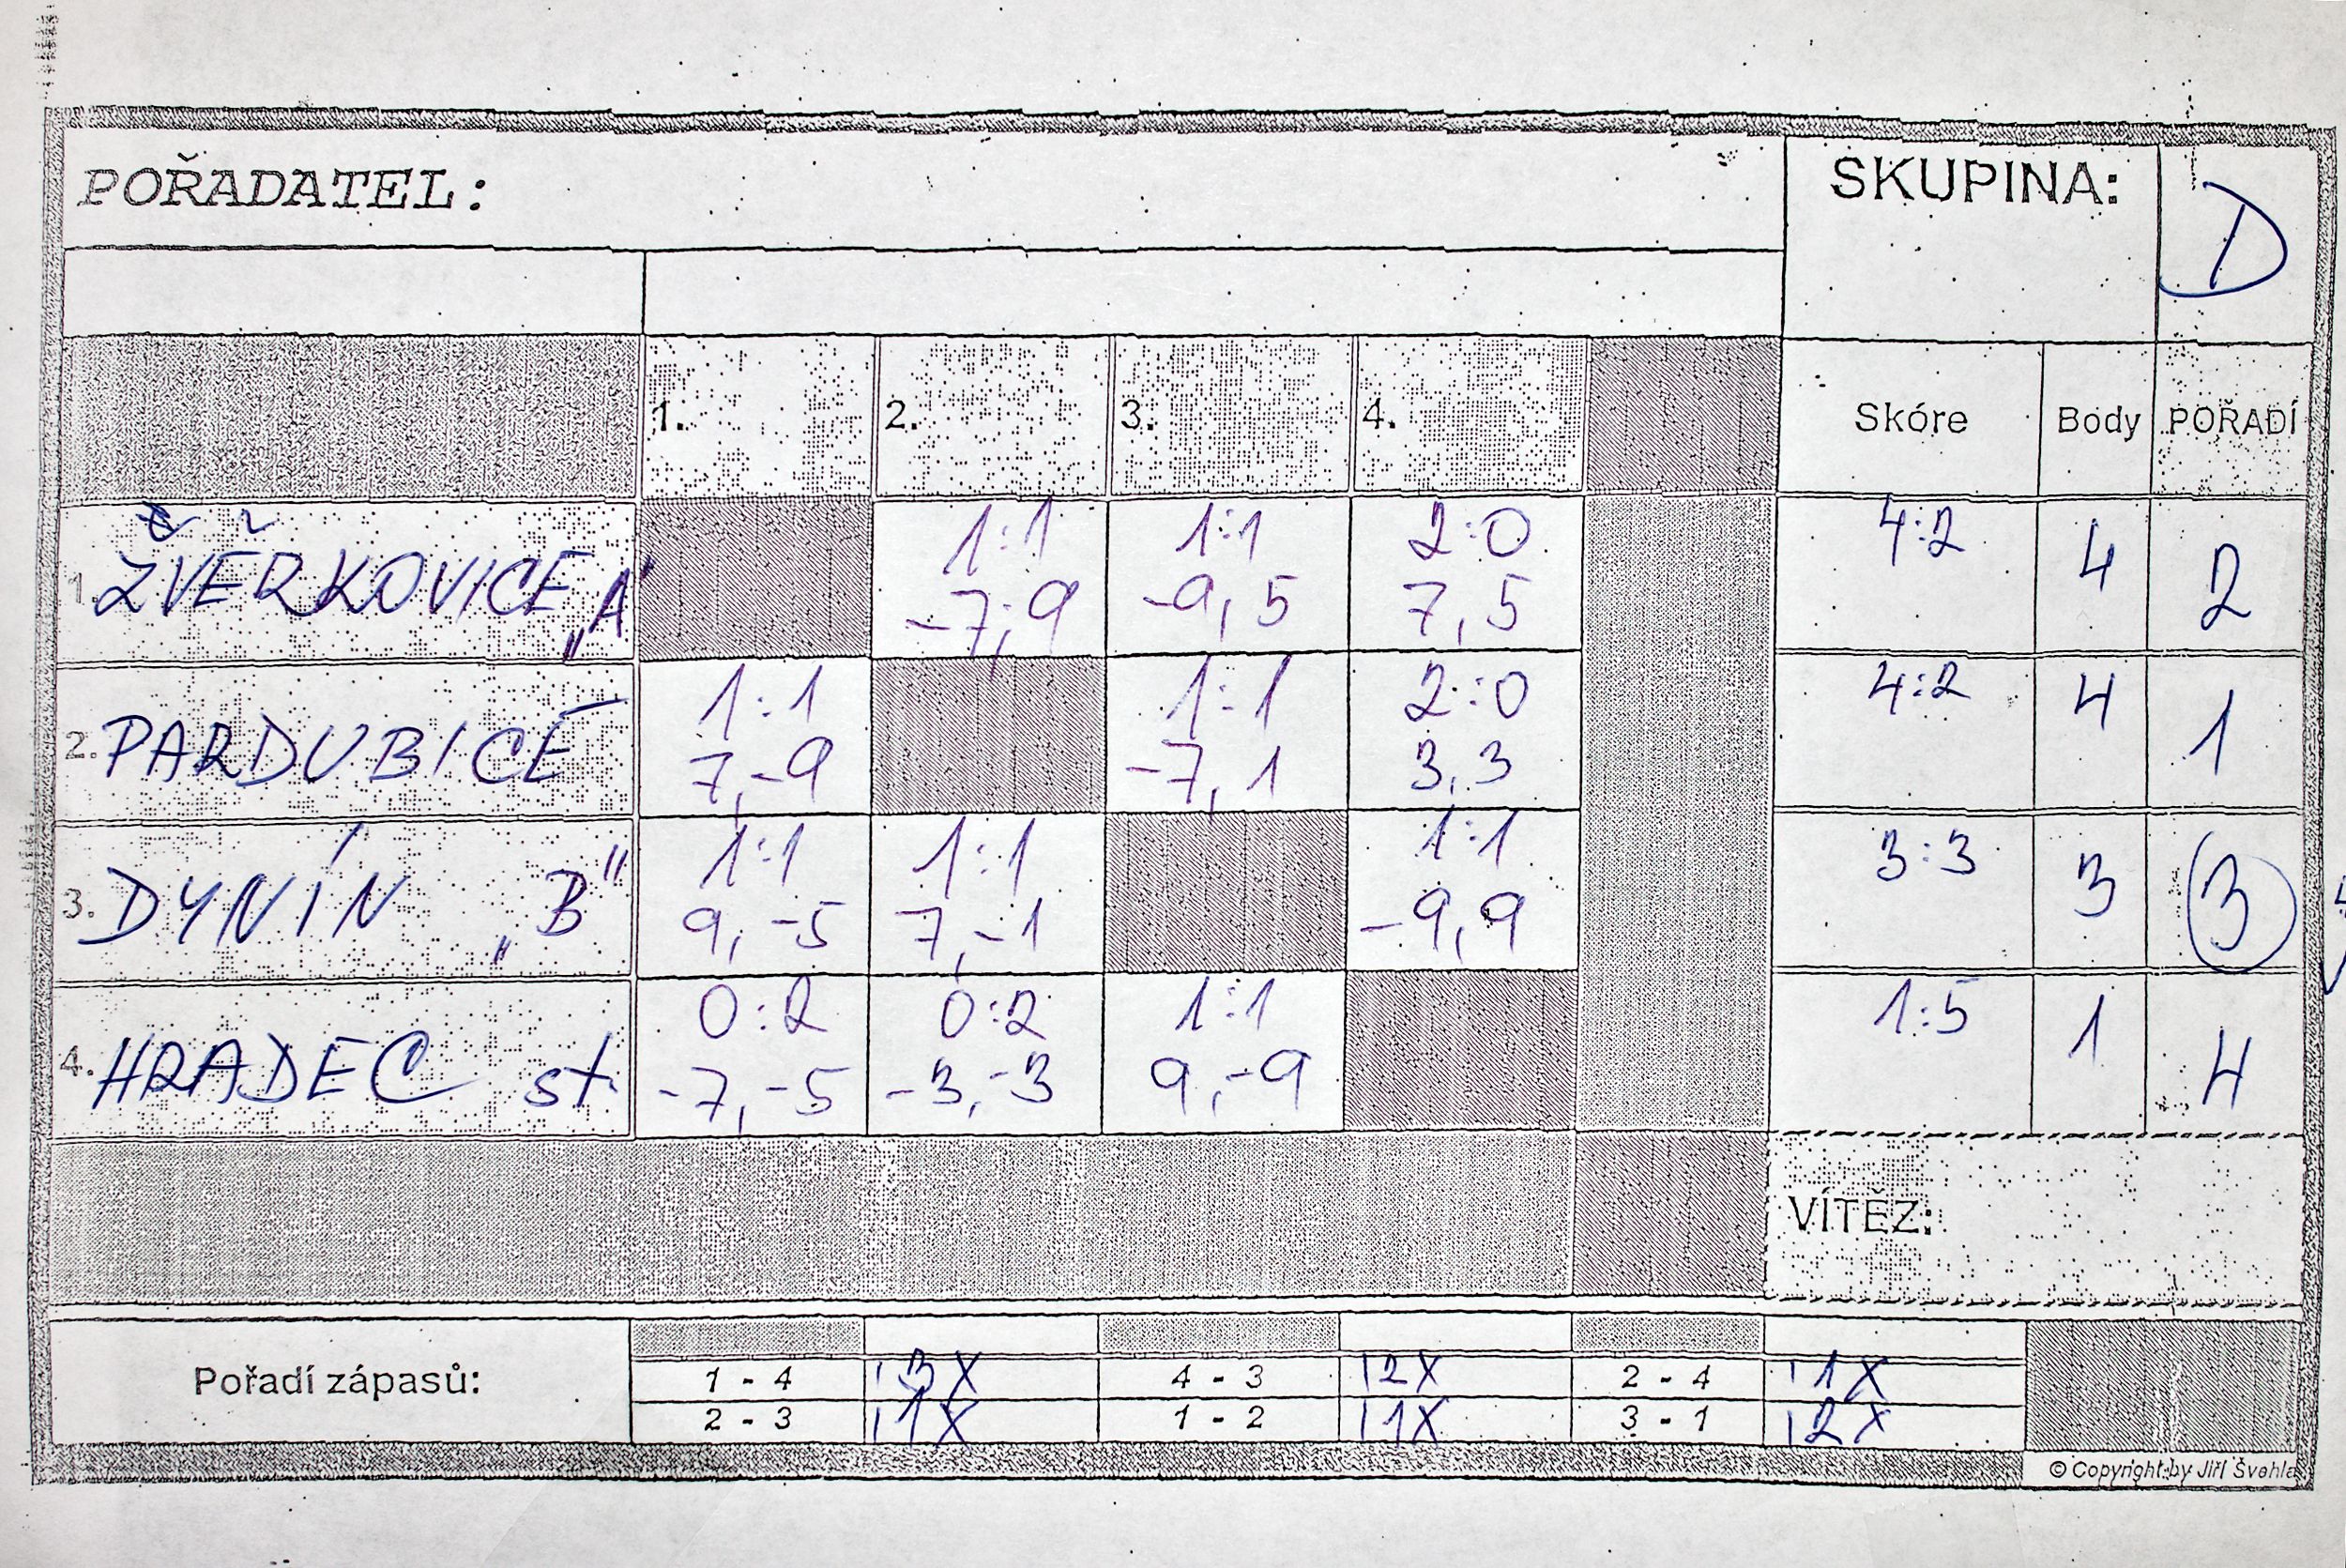 POŘADATEL:
SKUPINA: D
1. 2. 3. 4. Skóre Body POŘADÍ
1. ŽVĚRKOVICE „A" 1:1 1:1 2:0 4:2 4 2
-7,9 -9,5 7,5
2. PARDUBICE 1:1 1:1 2:0 4:2 4 1
7,-9 -7,1 3,3
3. DYNÍN „B" 1:1 1:1 1:1 3:3 3 3
9,-5 7,-1 -9,9
4. HRADEC st. 0:2 0:2 1:1 1:5 1 4
-7,-5 -3,-3 9,-9
VÍTĚZ:
Pořadí zápasů:
1 - 4 3X 4 - 3 2X 2 - 4 1X
2 - 3 1X 1 - 2 1X 3 - 1 2X
© Copyright by Jiří Švehla